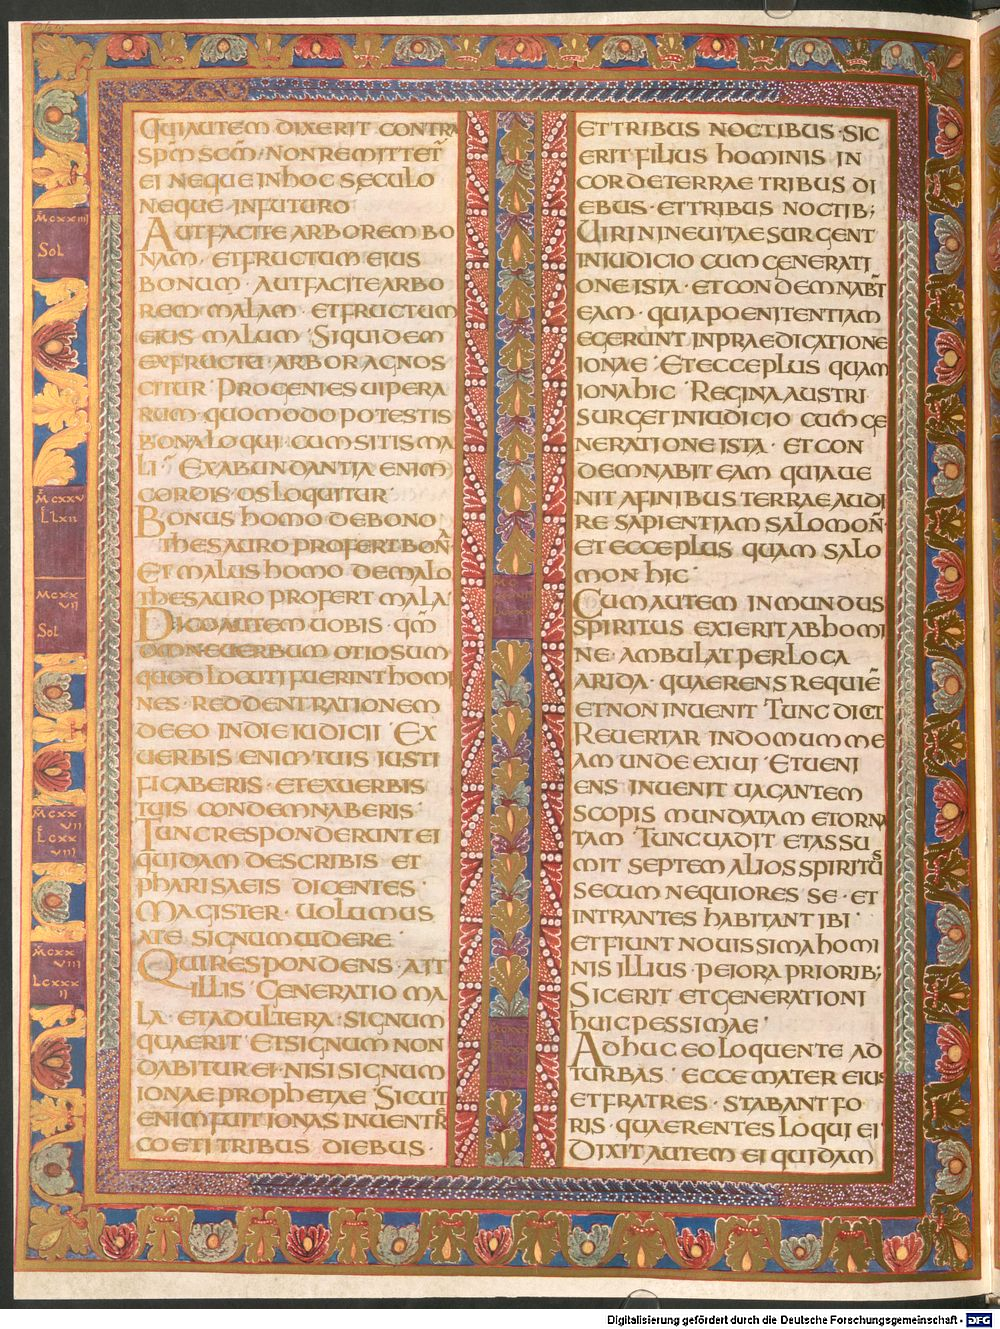 QUIAUTEM DIXERIT CONTRA
SPM̄ SCM̄ NON REMITTET̄
EI NEQUE IN HOC SÆCULO
NEQUE IN FUTURO
AUT FACITE ARBOREM BO
NAM · ET FRUCTUM EIUS
BONUM · AUT FACITE ARBO
REM MALAM · ET FRUCTUM
EIUS MALUM SIQUIDEM
EX FRUCTU ARBOR AGNOS
CITUR PROGENIES UIPERA
RUM · QUOMODO POTESTIS
BONA LOQUI · CUM SITIS MA
LI EX ABUNDANTIA ENIM
CORDIS · OS LOQUITUR
BONUS HOMO DE BONO
THESAURO PROFERT BON̄
ET MALUS HOMO DE MALO
THESAURO PROFERT MALA
DICO AUTEM UOBIS · QM̄
OMNE UERBUM OTIOSUM
QUOD LOCUTI FUERINT HOMI
NES · REDDENT RATIONEM
DE EO IN DIE IUDICII EX
UERBIS ENIM TUIS IUSTI
FICABERIS · ET EX UERBIS
TUIS CONDEMNABERIS
TUNC RESPONDERUNT EI
QUIDAM DE SCRIBIS ET
PHARISAEIS DICENTES
MAGISTER · UOLUMUS
A TE SIGNUM UIDERE
QUI RESPONDENS · AIT
ILLIS GENERATIO MA
LA · ET ADULTERA · SIGNUM
QUAERIT ET SIGNUM NON
DABITUR EI · NISI SIGNUM
IONAE PROPHETAE SICUT
ENIM FUIT IONAS IN UENTR
COETI TRIBUS DIEBUS ·
ET TRIBUS NOCTIBUS · SIC
ERIT FILIUS HOMINIS IN
CORDE TERRAE TRIBUS DI
EBUS · ET TRIBUS NOCTIB;
UIRI NINEUITAE SURGENT
IN IUDICIO CUM GENERATI
ONE ISTA · ET CONDEMNAB̄T
EAM · QUIA POENITENTIAM
EGERUNT IN PRAEDICATIONE
IONAE ET ECCE PLUS QUAM
IONA HIC REGINA AUSTRI
SURGET IN IUDICIO CUM GE
NERATIONE ISTA · ET CON
DEMNABIT EAM QUIA UE
NIT A FINIBUS TERRAE AUDI
RE SAPIENTIAM SALOMON̄ ·
ET ECCE PLUS QUAM SALO
MON HIC
CUM AUTEM INMUNDUS
SPIRITUS EXIERIT AB HOMI
NE · AMBULAT PER LOCA
ARIDA · QUAERENS REQUIĒ
ET NON INUENIT TUNC DICIT
REUERTAR IN DOMUM ME
AM UNDE EXIUI ET UENI
ENS INUENIT UACANTEM
SCOPIS MUNDATAM ET ORNA
TAM TUNC UADIT ET ASSU
MIT SEPTEM ALIOS SPIRITUS
SECUM NEQUIORES SE · ET
INTRANTES HABITANT IBI
ET FIUNT NOUISSIMA HOMI
NIS ILLIUS · PEIORA PRIORIB;
SIC ERIT ET GENERATIONI
HUIC PESSIMAE
ADHUC EO LOQUENTE AD
TURBAS ECCE MATER EIUS
ET FRATRES · STABANT FO
RIS · QUAERENTES LOQUI EI
DIXIT AUTEM EI QUIDAM
M̄CXXIII
SOL
M̄CXXV
L̄LXII
MCXX
VII
SOL
M̄CXX
VII
L̄CXX
VIII
M̄CXX
VIII
LCXXX
II
Digitalisierung gefördert durch die Deutsche Forschungsgemeinschaft - DFG